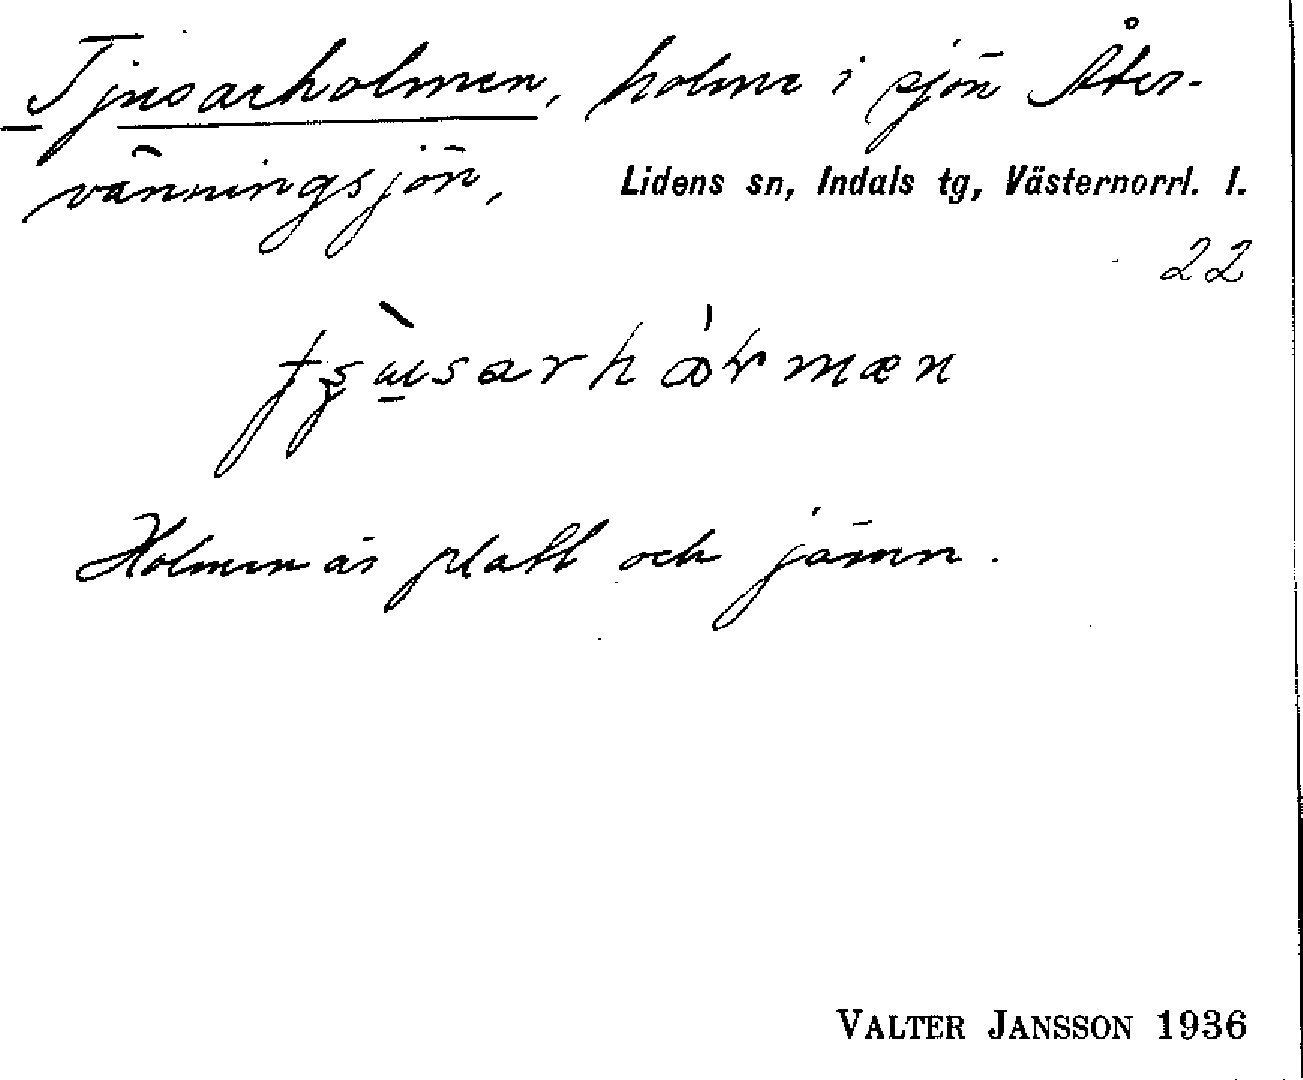 Tjusarholmen, holme i sjön Åter-
vänningsjön, Lidens sn, Indals tg, Västernorrl. l.
22
Holmen är platt och jämn.
VALTER JANSSON 1936